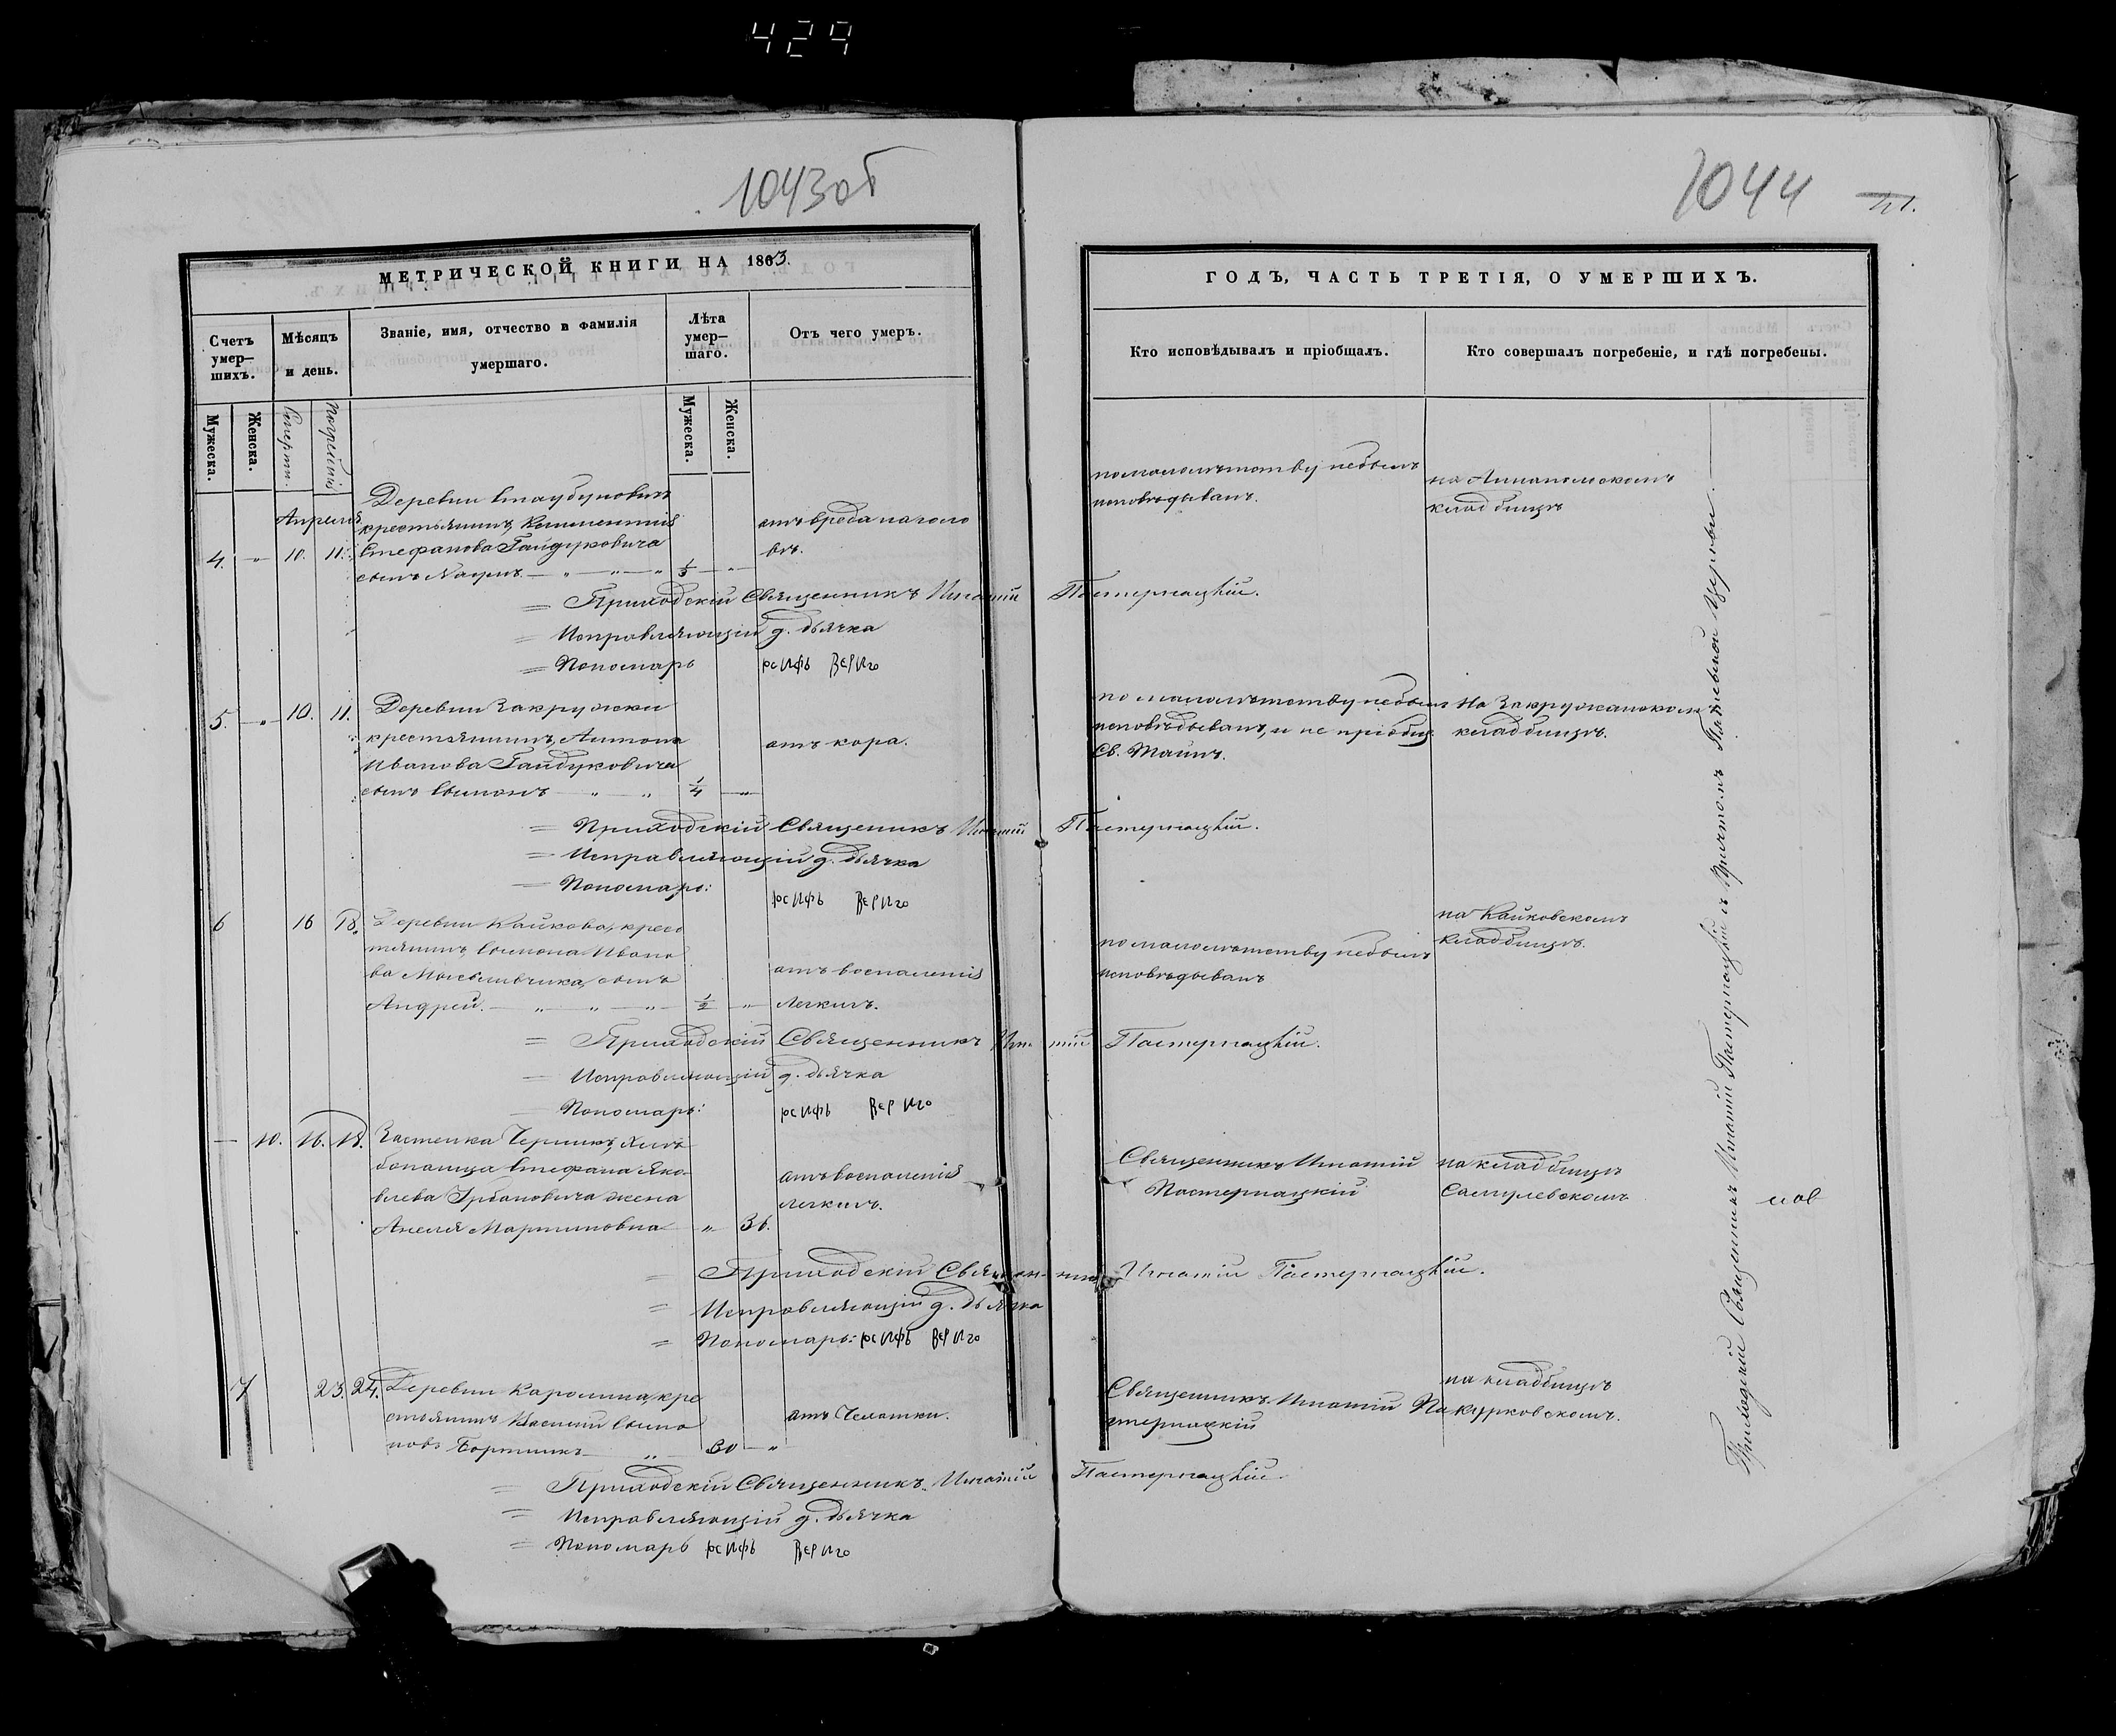 429
1043об
МЕТРИЧЕСКОЙ КНИГИ НА 1863.
Счетъ умер-шихъ.
Мѣсяцъ и день.
Званіе, имя, отчество и фамилія умершаго.
Лѣта умер-шаго.
Отъ чего умеръ.
Мужеска.
Женска.
Смерти.
Погребенія
Мужеска.
Женска.
Апреля
4. " 10. 11.
Деревни
крестьянина
Стефанова Гайдуковича
сынъ
1/3 "
отъ вреда на голо
вѣ.
= Приходскій Священникъ Игнатій Пастернацкій.
= Исправляющій д. дьячка
= Пономарь
5. " 10. 11.
Деревни Закружки
крестьянина, Антона
Иванова Гайдуковича
сынъ Симонъ " " 1/4 "
отъ кора.
= Приходскій Священикъ Игнатій Пастернацкій.
= Исправляющій д. дьячка
= Пономарь:
6 16 18.
Деревни Кайкова, крест
тянина, Симона Ивано
ва сынъ
Андрей. " " " 1/2 "
отъ воспаленія
легкихъ.
= Приходскій Священникъ Игнатій Пастернацкій.
= Исправляющій д. дьячка
= Пономарь:
— 10. 16. 18.
Застенка
Стефана Яко-
влева Урбановича жена
Анеля Мартиновна " 36.
отъ воспаленія
легкихъ.
= Приходскій Священникъ Игнатій Пастернацкій.
= Исправляющій д. дьячка
= Пономарь:
7 23. 24.
Деревни Каролина, кре
стьянинъ Василій Симо
новъ Бортникъ " 30 "
отъ Чехотки.
= Приходскій Священникъ Игнатій Пастернацкій.
= Исправляющій д. дьячка
= Пономарь
1044
ГОДЪ, ЧАСТЬ ТРЕТІЯ, О УМЕРШИХЪ.
Кто исповѣдывалъ и пріобщалъ.
Кто совершалъ погребеніе, и гдѣ погребены.
по малолѣтству небылъ
исповѣдыванъ.
на
кладбищѣ
по малолѣтству небылъ
исповѣдыванъ, и не пріобщ.
Св. Таинъ.
На Закружанскомъ
кладбищѣ.
по малолѣтству небылъ
исповѣдыванъ
на Кайковскомъ
кладбищѣ.
Священникъ Игнатій
Пастернацкій
на кладбищѣ
Самулевскомъ
Священникъ Игнатій Па
стернацкій
на кладбищѣ
Курковскомъ.
Приходскій Священникъ Игнатій Пастернацкій съ Причтомъ Церкви.